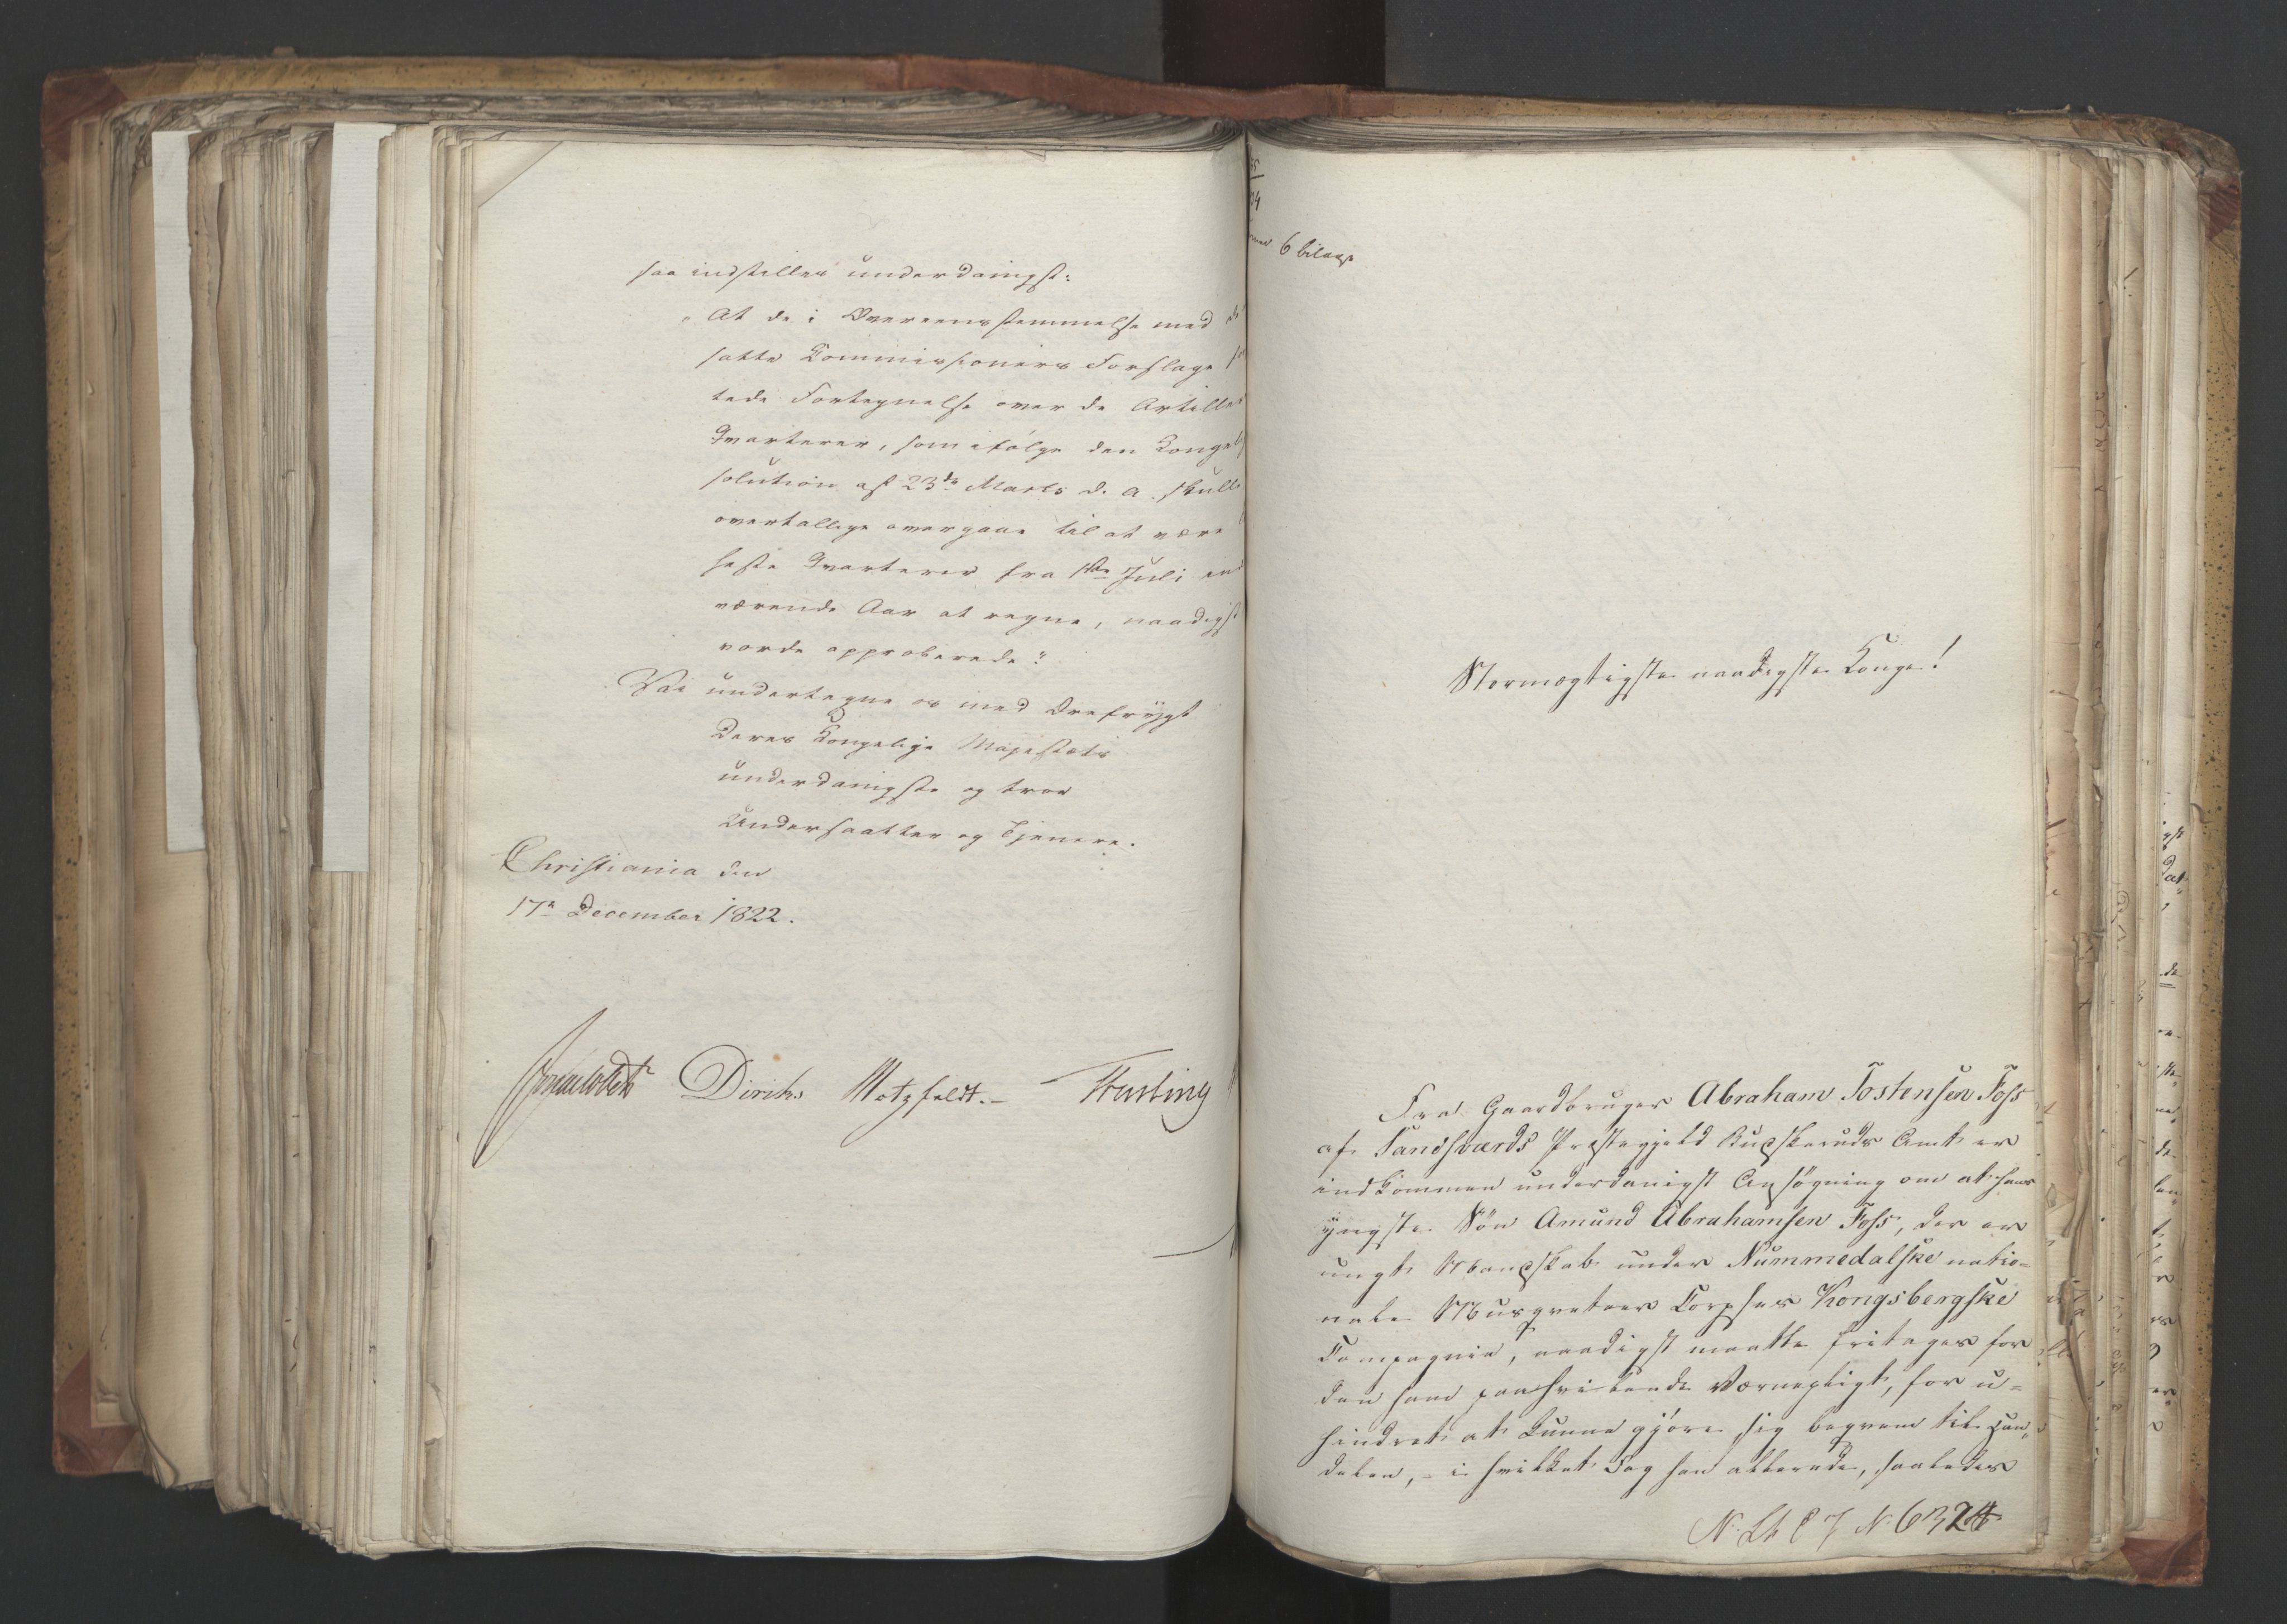 saa indstilles underdanigst:
"At de i Overeensstemmelse med
satte Commissioners Forslage
tede Fortegnelse over de Artille
Qvarterer, som ifølge den Kongel
solution af 23de Marts d. A. skull
overtallige overgaae til at være
heste Qvarterer fra 1ste Juli ind
værende Aar at regne, naadigst
vorde approberede"
Vi undertegne os med Ærefrygt
Deres Kongelige Majestæts
underdanigste og troe
Undersaatter og Tjenere.
Christiania den
17e December 1822.
Diriks Motzfeldt.-
6 bilage
Stormægtigste naadigste Konge!
Fra Gaardbruger Abraham Tostensen Foss
af Sandsværds Præstegjeld Buskeruds Amt er
indkommen underdanigst Ansøgning om at hans
yngste Søn Amund Abrahamsen Foss, der er
ungt Mandskab under Nummedalske natio=
nale Musqueteer Corpses Kongsbergske
Compagnie, naadigst maatte fritages for
den ham paahvilende Værnepligt, for u=
hindret at kunne gjøre sig beqvem til Han„
delen, - i hvilket Fag han allerede, saaledes